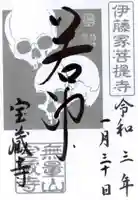 伊藤家菩提寺
令和三年
一月三十日
若冲
無量山
宝蔵寺
宝蔵寺